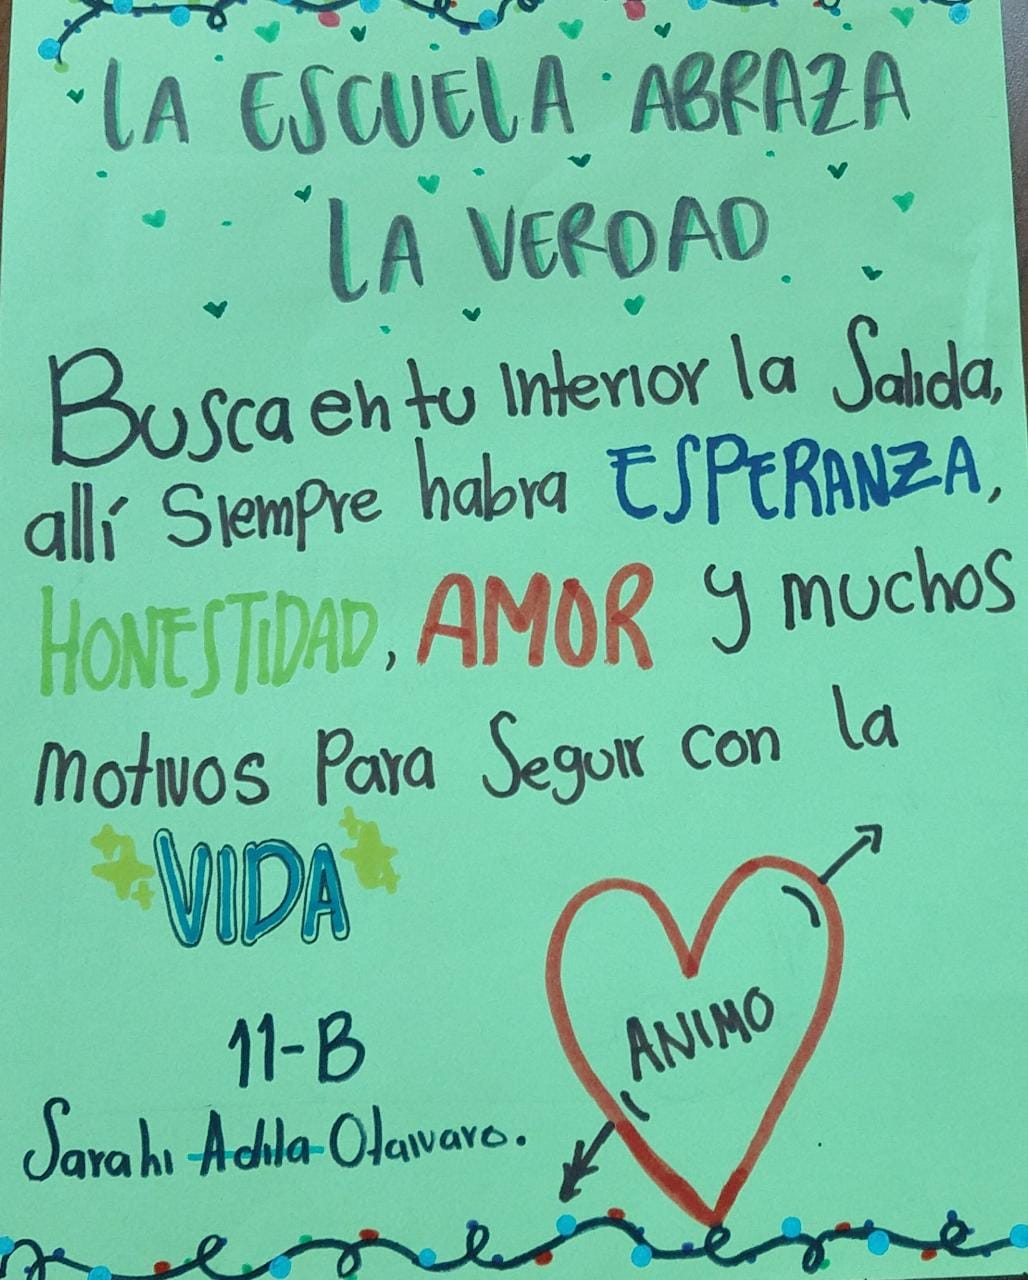 LA ESCUELA ABRAZA
LA VERDAD
Busca en tu Interior la Salida,
allí Siempre habra ESPERANZA,
HONESTIDAD, AMOR y muchos
motivos Para Seguir con la
VIDA
ANIMO
11-B
Sarahi Adila Olaivaro.